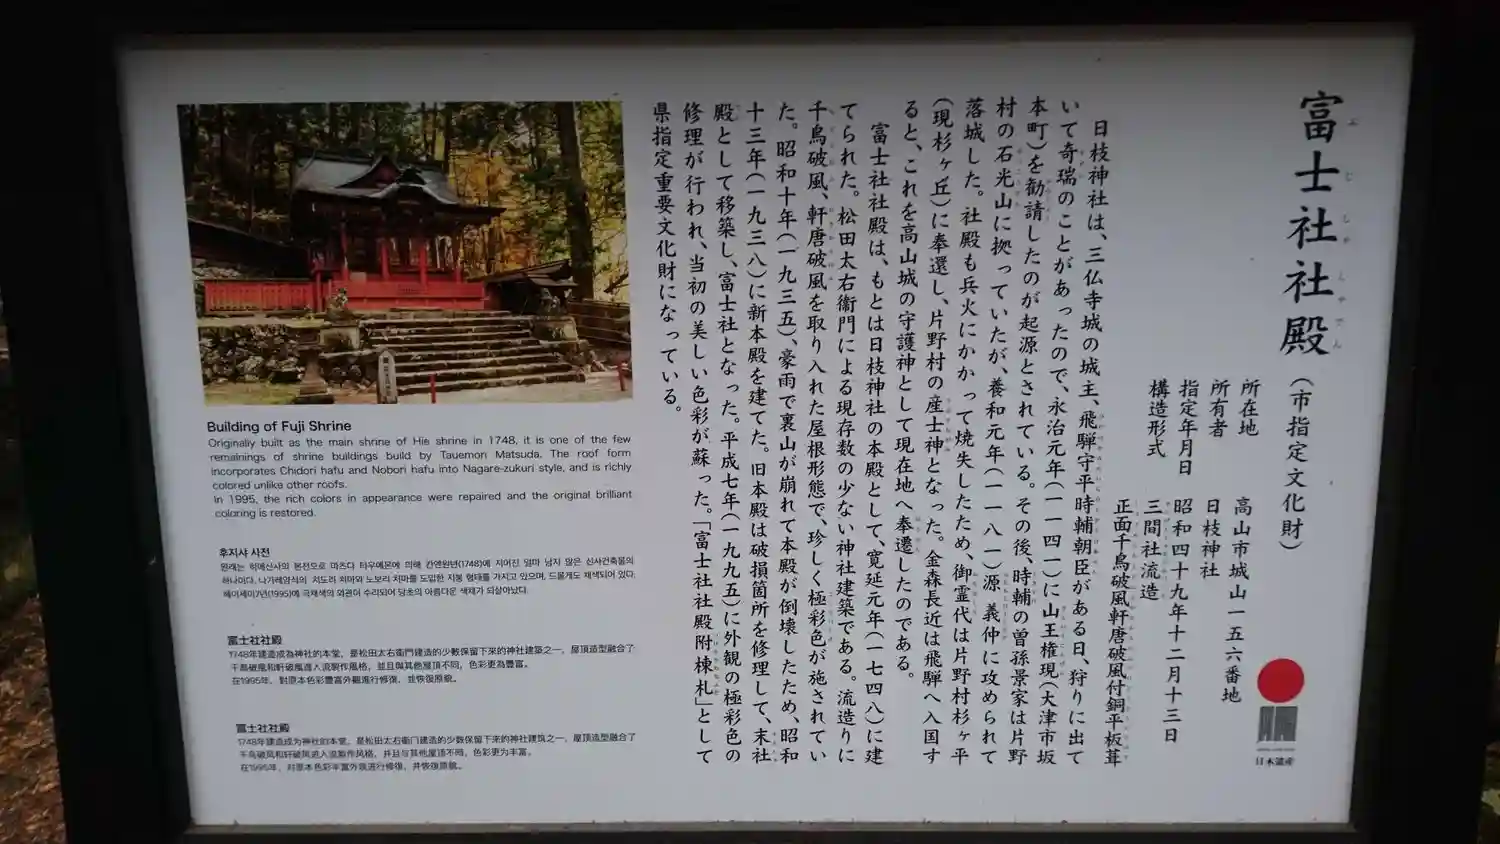 富士社社殿（市指定文化財）
所在地　高山市城山一五六番地
所有者　日枝神社
指定年月日　昭和四十九年十二月十三日
構造形式　三間社流造
正面千鳥破風軒唐破風付銅平板葺
日枝神社は、三仏寺城の城主、飛騨守平時輔朝臣がある日、狩りに出て
いて奇瑞のことがあったので、永治元年（一一四一）に山王権現（大津市坂
本町）を勧請したのが起源とされている。その後、時輔の曽孫景家は片野
村の石光山に拠っていたが、養和元年（一一八一）源義仲に攻められて
落城した。社殿も兵火にかかって焼失したため、御霊代は片野村杉ヶ平
（現杉ヶ丘）に奉還し、片野村の産土神となった。金森長近は飛騨へ入国す
ると、これを高山城の守護神として現在地へ奉遷したのである。
富士社社殿は、もとは日枝神社の本殿として、寛延元年（一七四八）に建
てられた。松田太右衛門による現存数の少ない神社建築である。流造りに
千鳥破風、軒唐破風を取り入れた屋根形態で、珍しく極彩色が施されてい
た。昭和十年（一九三五）、豪雨で裏山が崩れて本殿が倒壊したため、昭和
十三年（一九三八）に新本殿を建てた。旧本殿は破損箇所を修理して、末社
殿として移築し、富士社となった。平成七年（一九九五）に外観の極彩色の
修理が行われ、当初の美しい色彩が蘇った。「富士社社殿附棟札」として
県指定重要文化財になっている。
日本遺産
Building of Fuji Shrine
Originally built as the main shrine of Hie shrine in 1748, it is one of the few
remainings of shrine buildings build by Tauemon Matsuda. The roof form
incorporates Chidori hafu and Nobori hafu into Nagare-zukuri style, and is richly
colored unlike other roofs.
In 1995, the rich colors in appearance were repaired and the original brilliant
coloring is restored.
후지샤 사전
원래는 히에신사의 본전으로 마츠다 타우에몬에 의해 칸엔원년(1748)에 지어진 얼마 남지 않은 신사건축물의
하나이다. 나가레양식의 치도리 하마와 노보리 하마를 도입한 지붕 형태를 가지고 있으며, 드물게도 채색되어 있다.
헤이세이7년(1995)에 극채색의 외관이 수리되어 당초의 아름다운 색채가 되살아났다.
富士社社殿
1748年建造成為神社的本堂，是松田太右衛門建造的少數保留下來的神社建築之一，屋頂造型融合了
千鳥破風和軒破風進入流製作風格，並且與其他屋頂不同，色彩更為豐富。
在1995年，對原本色彩豐富外觀進行修復，並恢復原貌。
富士社社殿
1748年建造成为神社的本堂，是松田太右衛门建造的少数保留下来的神社建筑之一，屋顶造型融合了
千鸟破风和轩破风进入流製作风格，并且与其他屋顶不同，色彩更为丰富。
在1995年，对原本色彩丰富外观进行修复，并恢復原貌。